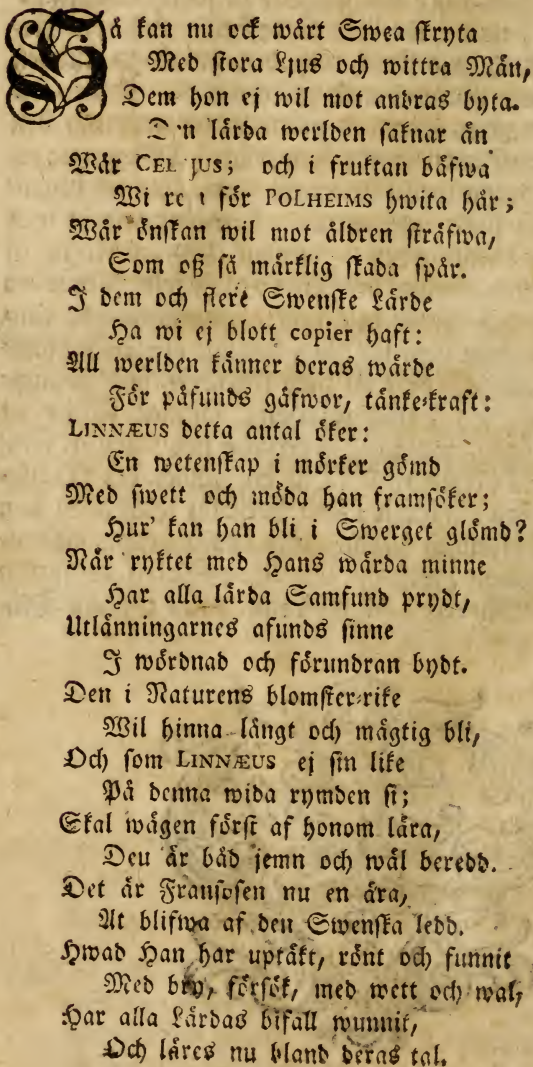 Så kan nu ock wårt Swea skryta
Med stora Ljus och wittra Män,
Dem hon ej wil mot andras byta.
Den lärda werlden saknar än
Wår CEL JUS; och i fruktan bäfwa
Wi re för POLHEIMS hwita hår;
Wår önskan wil mot åldren sträfwa,
Som oß så märklig skada spår.
I dem och flere Swenske Lärde
Ha wi ej blott copier haft:
All werlden känner deras wärde
För påfunds gåfwor, tänke-kraft:
LINNÆUS detta antal öker:
En wetenskap i mörker gömd
Med swett och möda han framsöker;
Hur' kan han bli i Swerget glömd?
När ryktet med Hans wärda minne
Har alla lärda Samfund prydt,
Utlänningarnes afunds sinne
I wördnad och förundran bydt.
Den i Naturens blomster-rike
Wil hinna långt och mägtig bli,
Och som LINNÆUS ej sin like
På denna wida rymden si;
Skal wägen först af honom lära,
Den är båd jemn och wäl beredd.
Det är Fransosen nu en ära,
At blifwa af den Swenska ledd.
Hwad Han har uptäkt, rönt och funnit
Med bry, försök, med wett och wal,
Har alla Lärdas bifall wunnit,
Och läres nu bland deras tal.